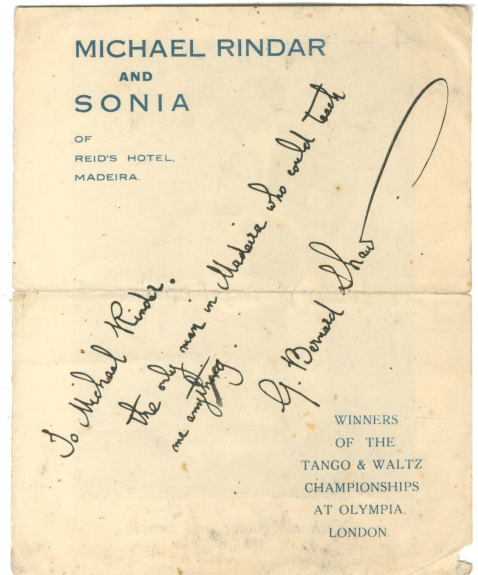 MICHAEL RINDAR
AND
SONIA
OF
REID'S HOTEL,
MADEIRA.
To Michael Rindar.
the only man in Madeira who could teach
me anything.
G. Bernard Shaw
WINNERS
OF THE
TANGO & WALTZ
CHAMPIONSHIPS
AT OLYMPIA,
LONDON.